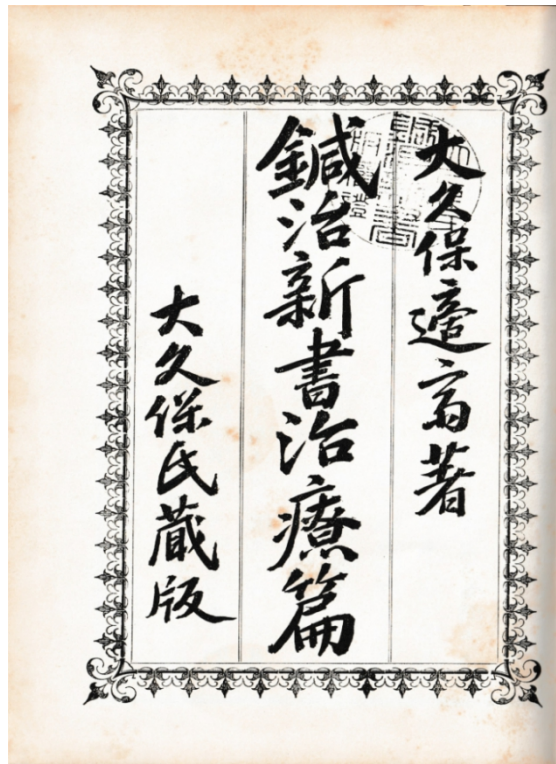 大久保適斎著
鍼治新書治療篇
大久保氏蔵版